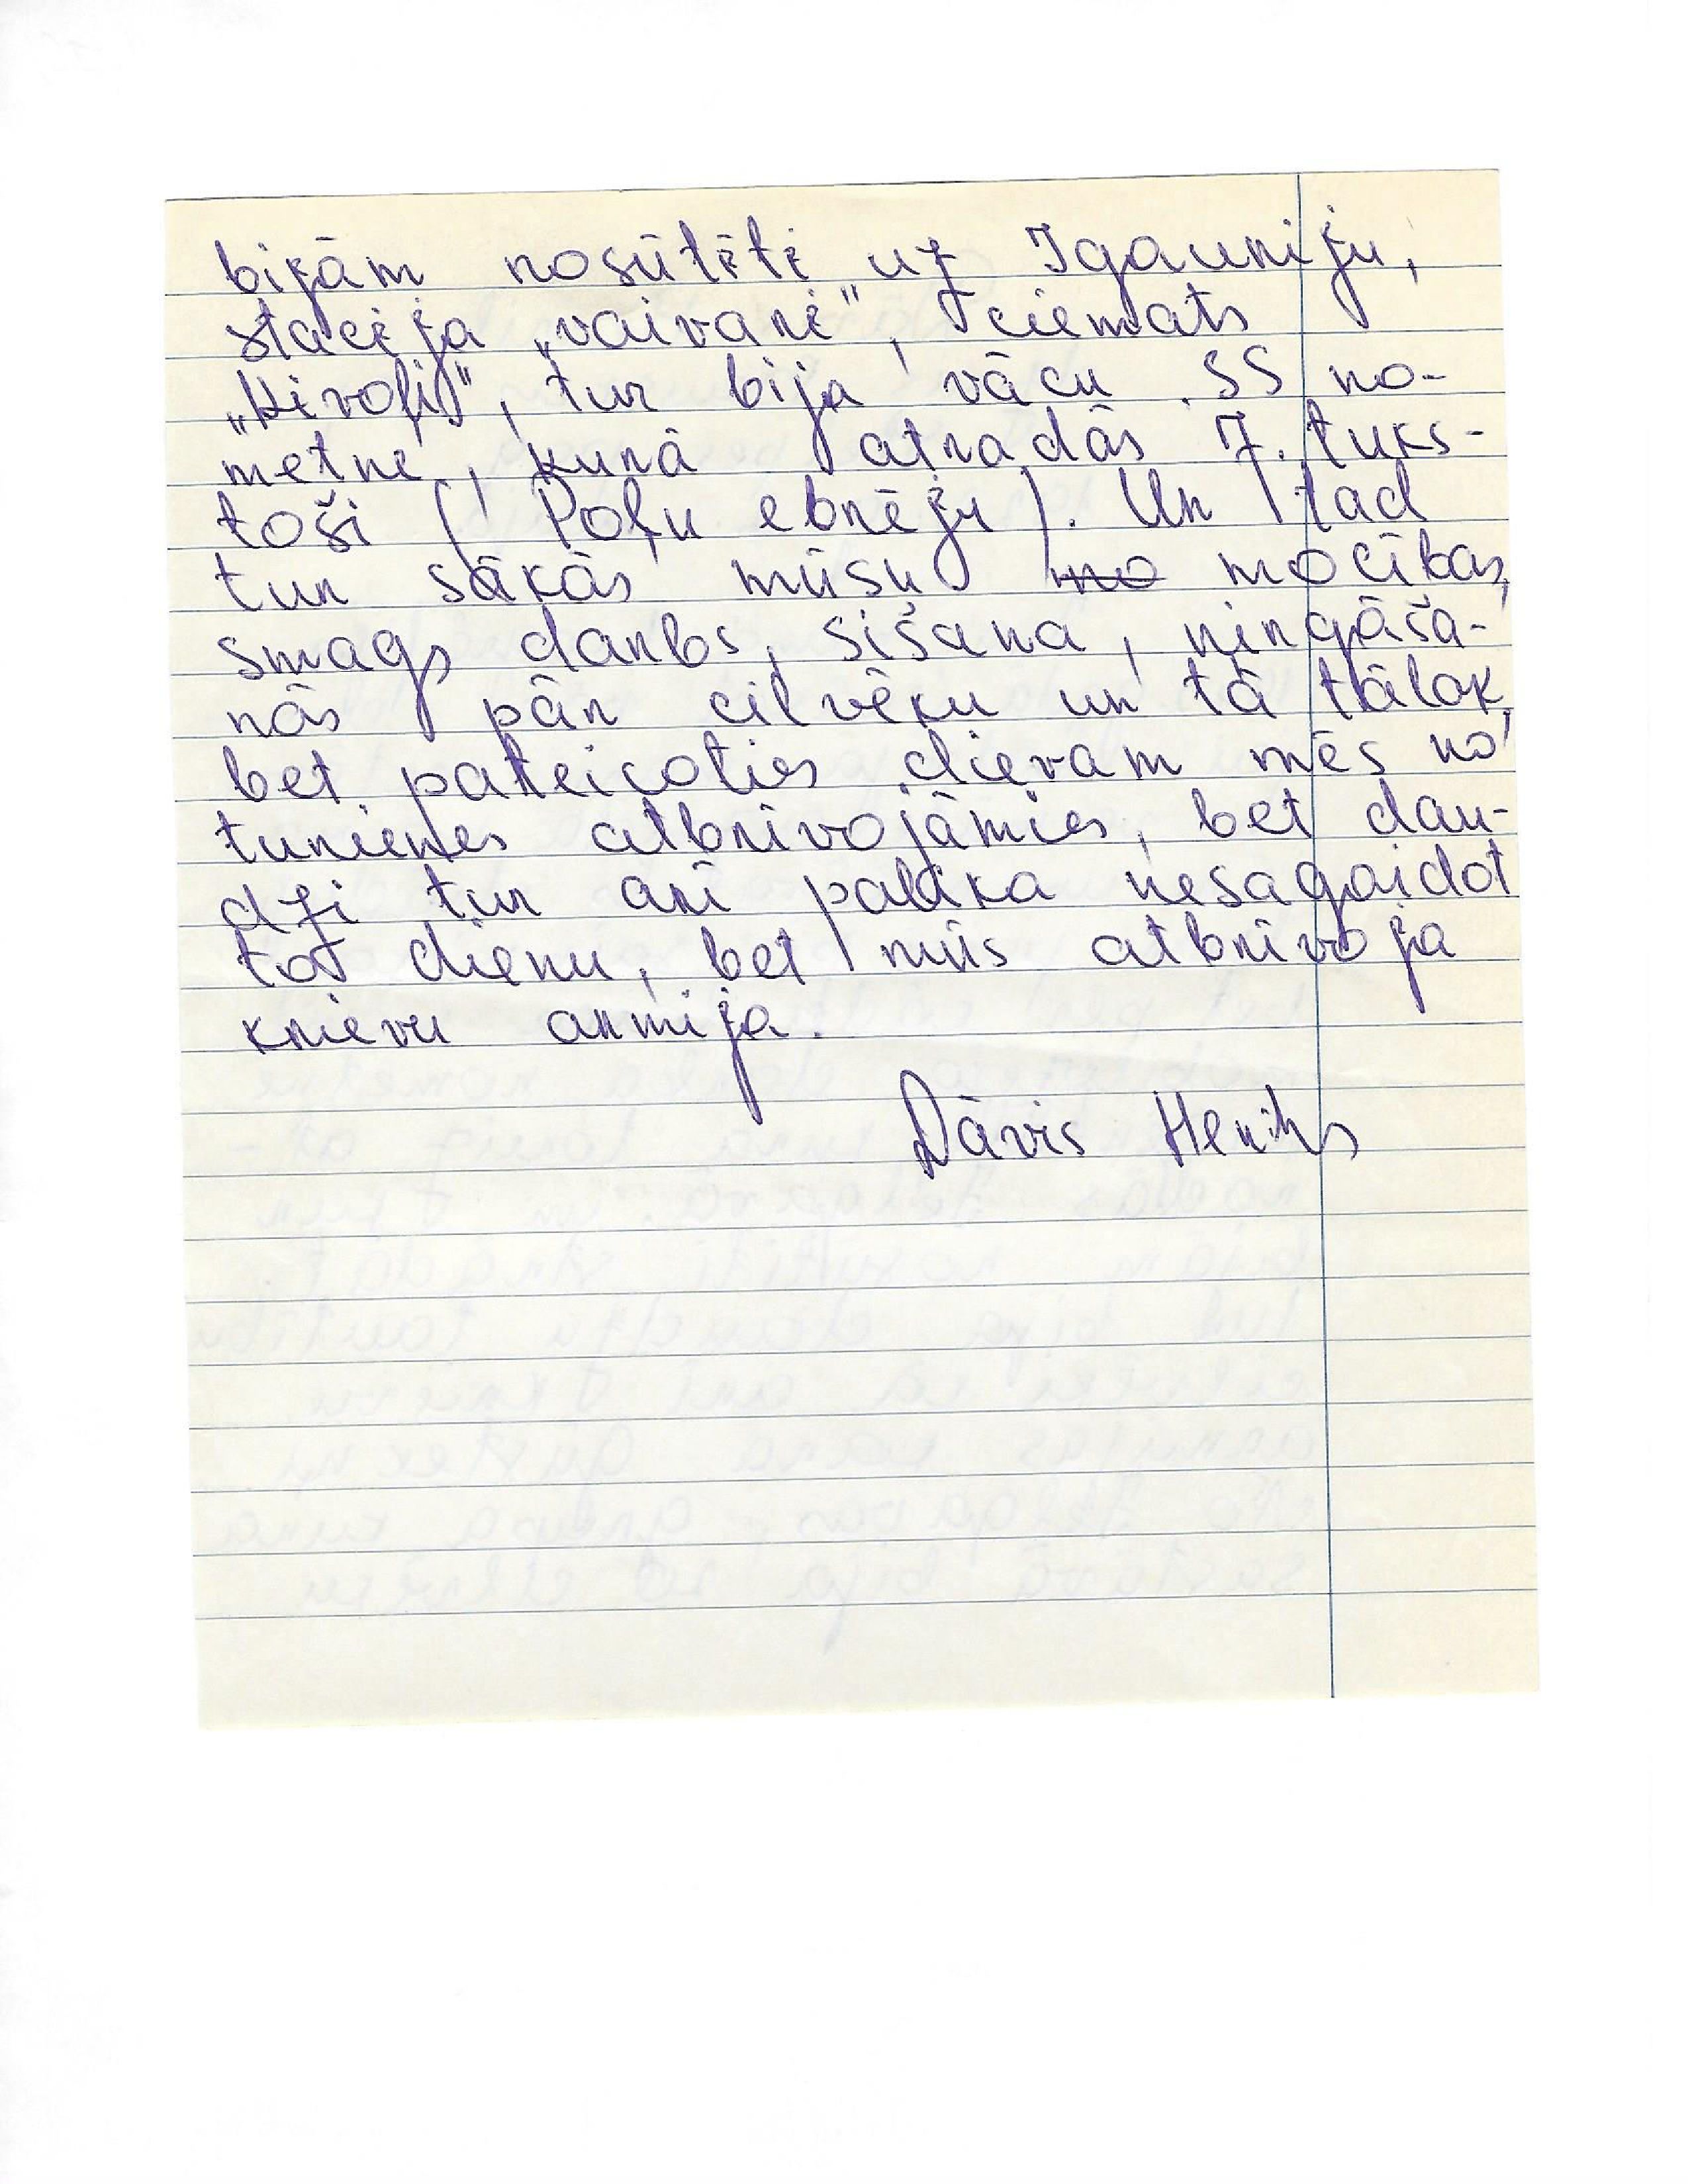 bijām nosūtīti uz Igauniju,
stacija „vaivari", ciemats
„Kivoļi", tur bija vācu SS no-
metne, kurā atradās 7. tuks-
toši (Poļu ebrēju). Un tad
tur sākās mūsu mo mocības,
smags darbs, sišana, ņirgāša-
nās pār cilvēku un tā tālak,
bet pateicoties dievam mēs no
turienes atbrīvojāmies, bet dau-
dzi tur arī palika nesagaidot
to dienu, bet mūs atbrīvoja
krievu armija.
Dāvis Henihs